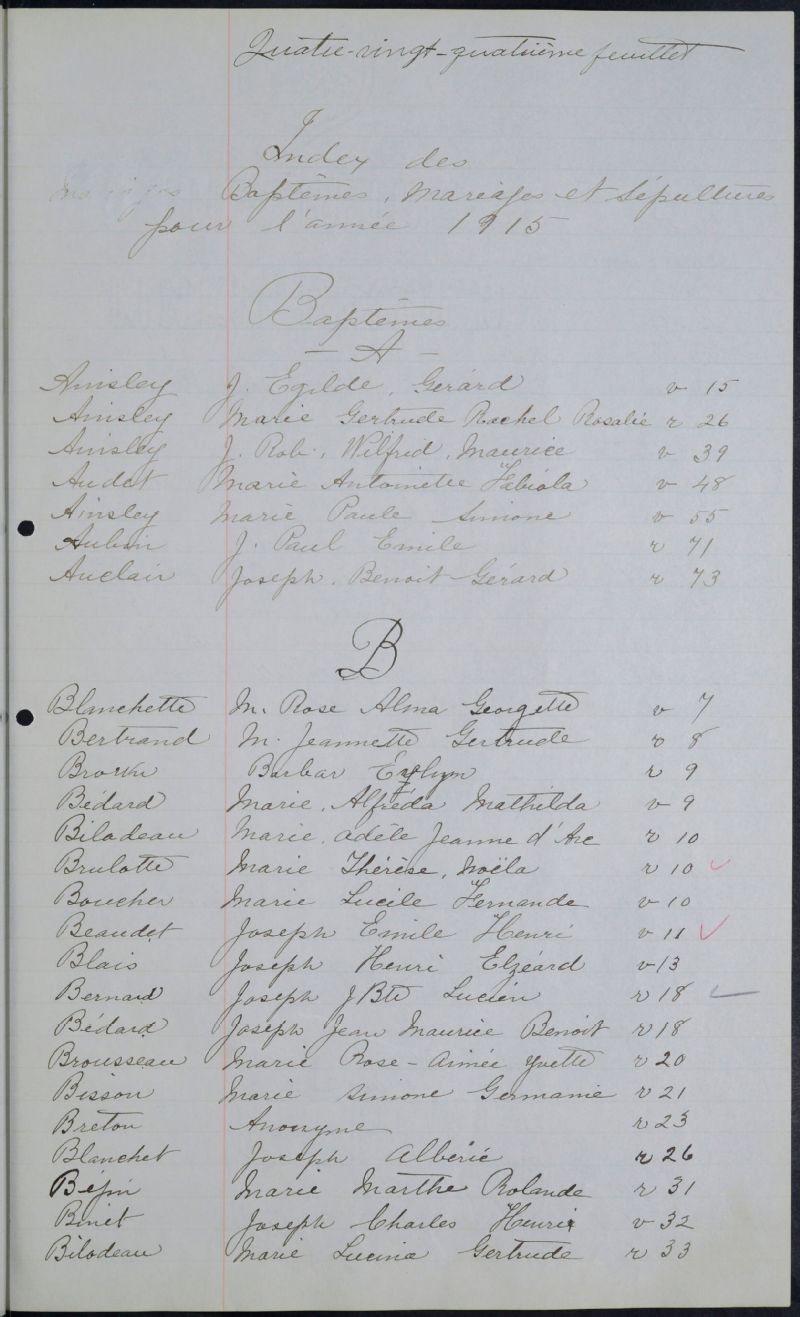 Quatre-vingt-quatrième feuillet
Index des
Baptêmes, Mariages et Sépultures
pour l'année 1915
Baptêmes
- A -
Ainsley J. Egilde, Gérard v 15
Ainsley Marie Gertrude Rachel Rosalie r 26
Ainsley J. Rob. Wilfrid, Maurice v 39
Audet Marie Antoinette Fabiola v 48
Ainsley Marie Paule Simone v 55
Aubin J. Paul Emile r 71
Auclair Joseph, Benoit Gérard r 73
B
Blanchette M. Rose Alma Georgette v 7
Bertrand M. Jeannette Gertrude r 8
Brown Barbar r 9
Bédard Marie, Alfréda Mathilda v 9
Bilodeau Marie, adèle Jeanne d'Arc r 10
Brulotte Marie Thérèse, Noëla r 10
Boucher Marie Lucile Fernande v 10
Beaudet Joseph Emile Henri v 11
Blais Joseph Henri Elzéard v 13
Bernard Joseph J Bte Lucien r 18
Bédard Joseph Jean Maurice Benoit r 18
Brousseau Marie Rose-aimée Yvette r 20
Bisson Marie Simone Germanie v 21
Breton Anonyme r 23
Blanchet Joseph Albéric r 26
Bégin Marie Marthe Rolande r 31
Binet Joseph Charles Henri v 32
Bilodeau Marie Lucina Gertrude r 33